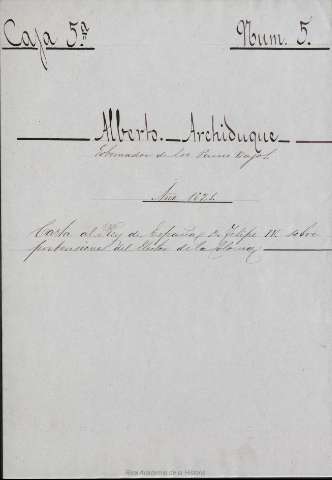 Caja 5ª Num. 5.
Alberto. Archiduque
Gobernador de los Paises Bajos.
Año
Carta al Rey de España, Dn Felipe III sobre
pretensiones del Elector de la
Real Academia de la Historia